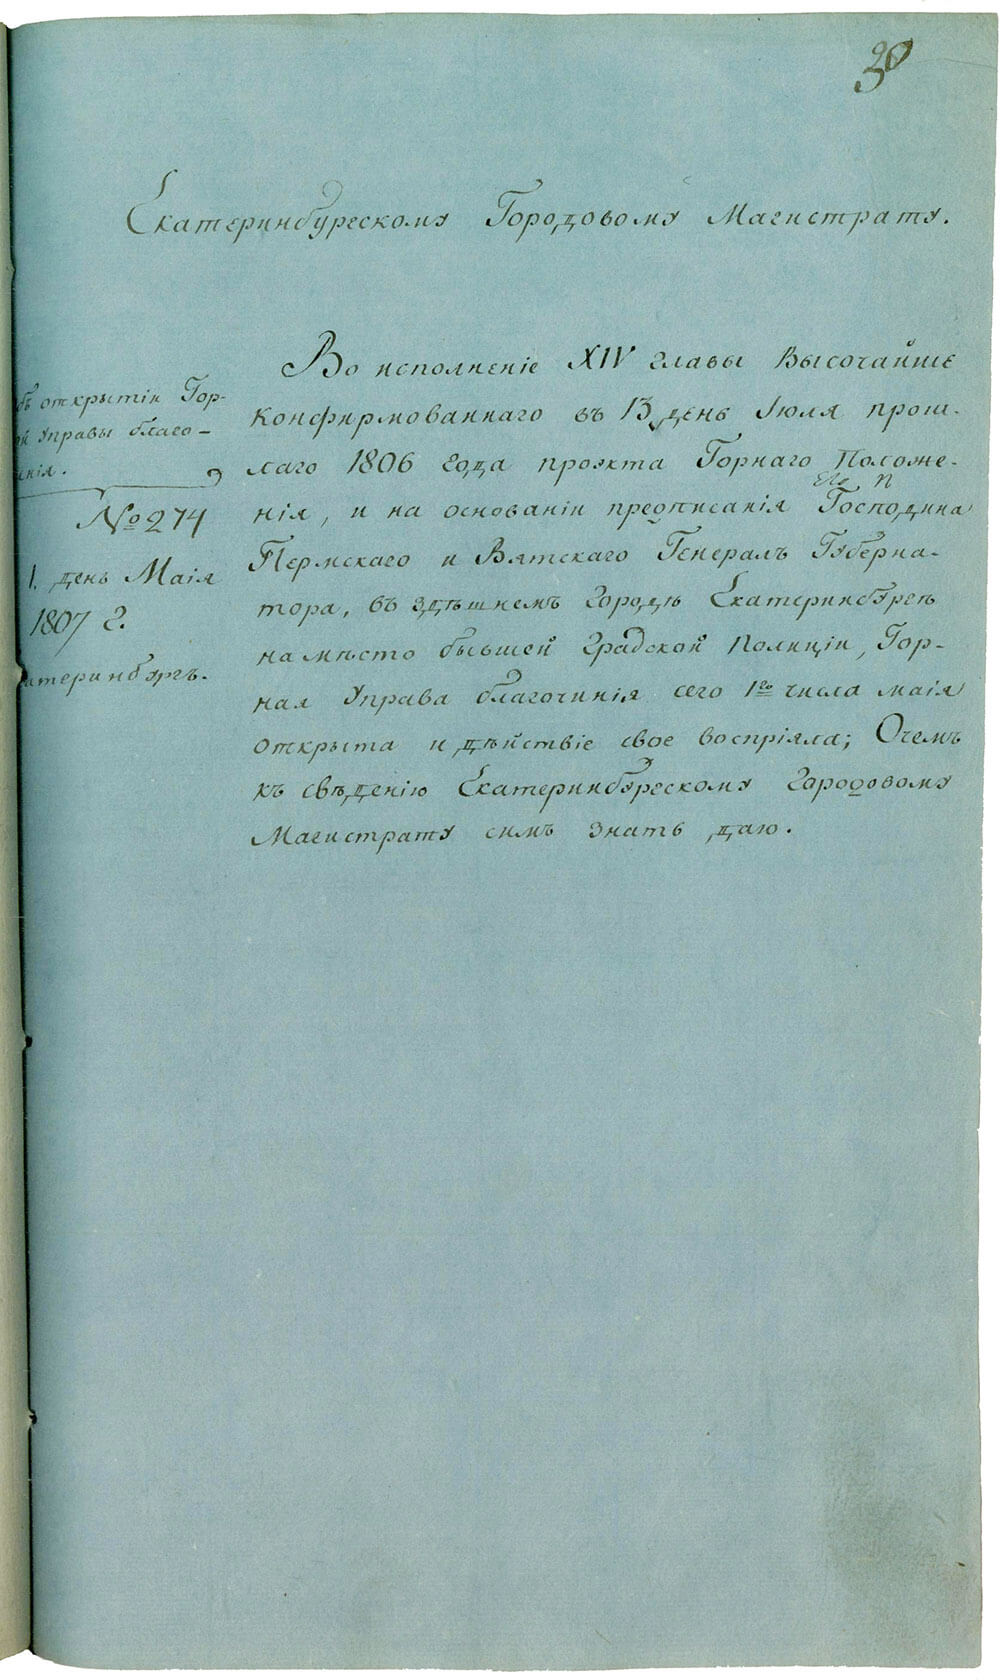 30
Екатеринбургскому Городовому Магистрату.
бъ открытіи Гор-
ой Управы благо-
инія.
№ 274
1. день Маія
1807 г.
атеринбургъ.
Во исполненіе XIV главы Высочайше
конфирмованнаго въ 13 день Іюля прош-
лаго 1806 года проэкта Горнаго Положе-
нія, и на основаніи предписанія Господина
Пермскаго и Вятскаго Генералъ Губерна-
тора, въ здѣшнемъ городѣ Екатеринбургѣ
на мѣсто бывшей градской Полиціи, Гор-
ная Управа благочинія сего 1го числа маія
открыта и дѣйствіе свое воспріяла; О чемъ
къ свѣденію Екатеринбургскому городовому
Магистрату симъ знать даю.